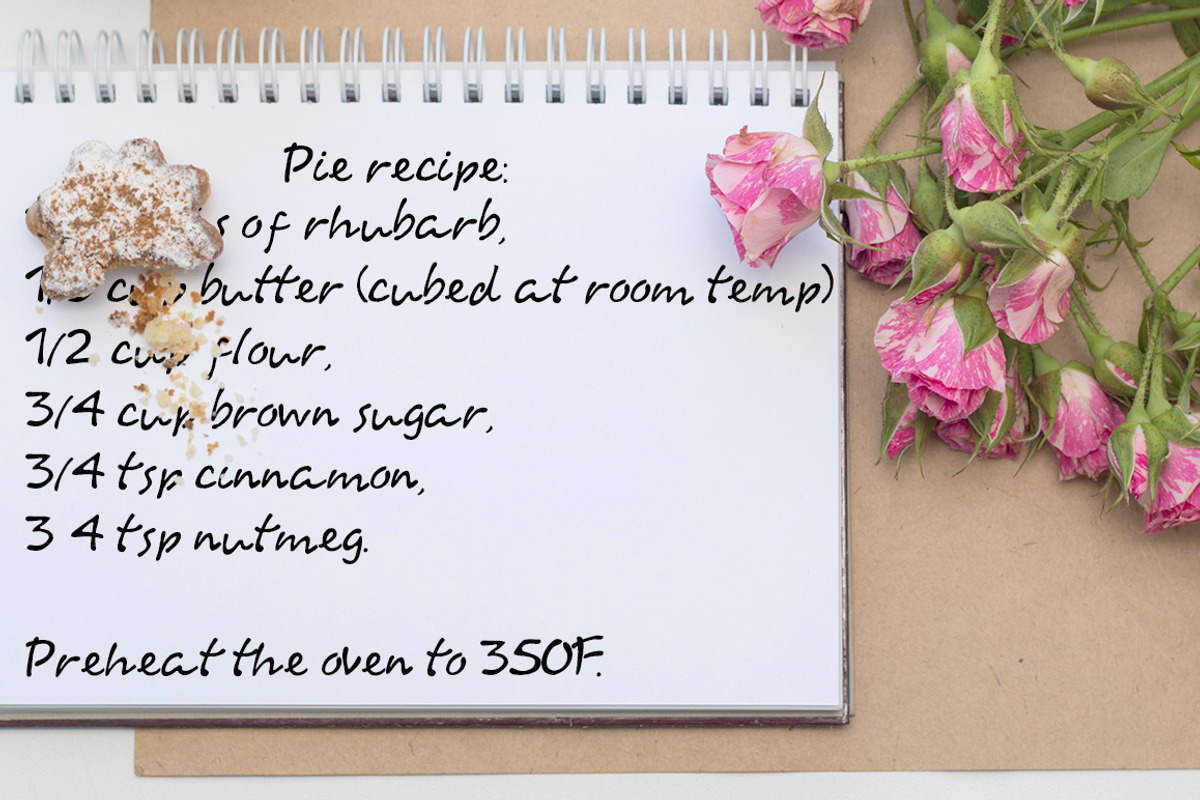 Pie recipe:
of rhubarb,
cup butter (cubed at room temp)
1/2 cup flour,
3/4 cup brown sugar,
3/4 tsp cinnamon,
3 4 tsp nutmeg.
Preheat the oven to 350F.